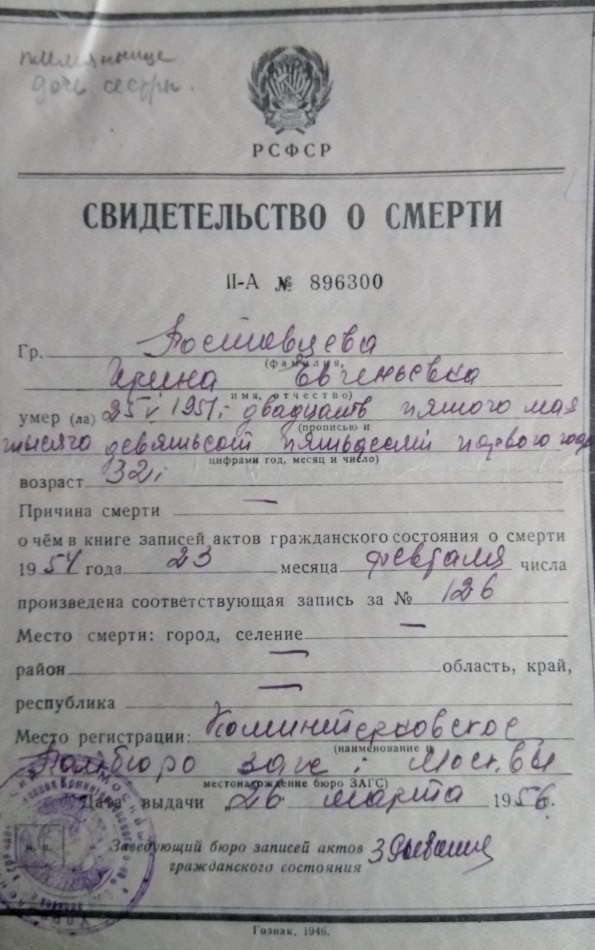 племяннице
дочь сестры.
РСФСР
СВИДЕТЕЛЬСТВО О СМЕРТИ
II-А № 896300
Гр. Ростовцева
(фамилия,
Ирина Евгеньевна
имя, отчество)
умер (ла) 25 V 1951 г. двадцать пятого мая
(прописью и
тысяча девятьсот пятьдесят первого года
цифрами год, месяц и число)
возраст 32 г.
Причина смерти —
о чём в книге записей актов гражданского состояния о смерти
1954 года 23 месяца февраля числа
произведена соответствующая запись за № 126
Место смерти: город, селение —
район — область, край,
республика —
Место регистрации: Коминтерновское
(наименование и
Райбюро загс г. Москвы
местонахождение бюро ЗАГС)
Дата выдачи „26 марта 1956.
Заведующий бюро записей актов
гражданского состояния
Гознак, 1946.